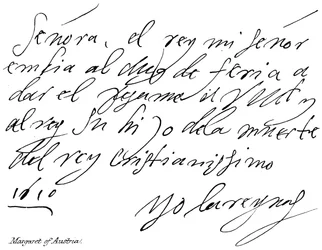 Señora, el rey mi señor
embia al duq de feria a
dar el pesame a V Md y
al rey su hijo de la muerte
del rey Cristianissimo
1610
yo la reyna
Margaret of Austria.